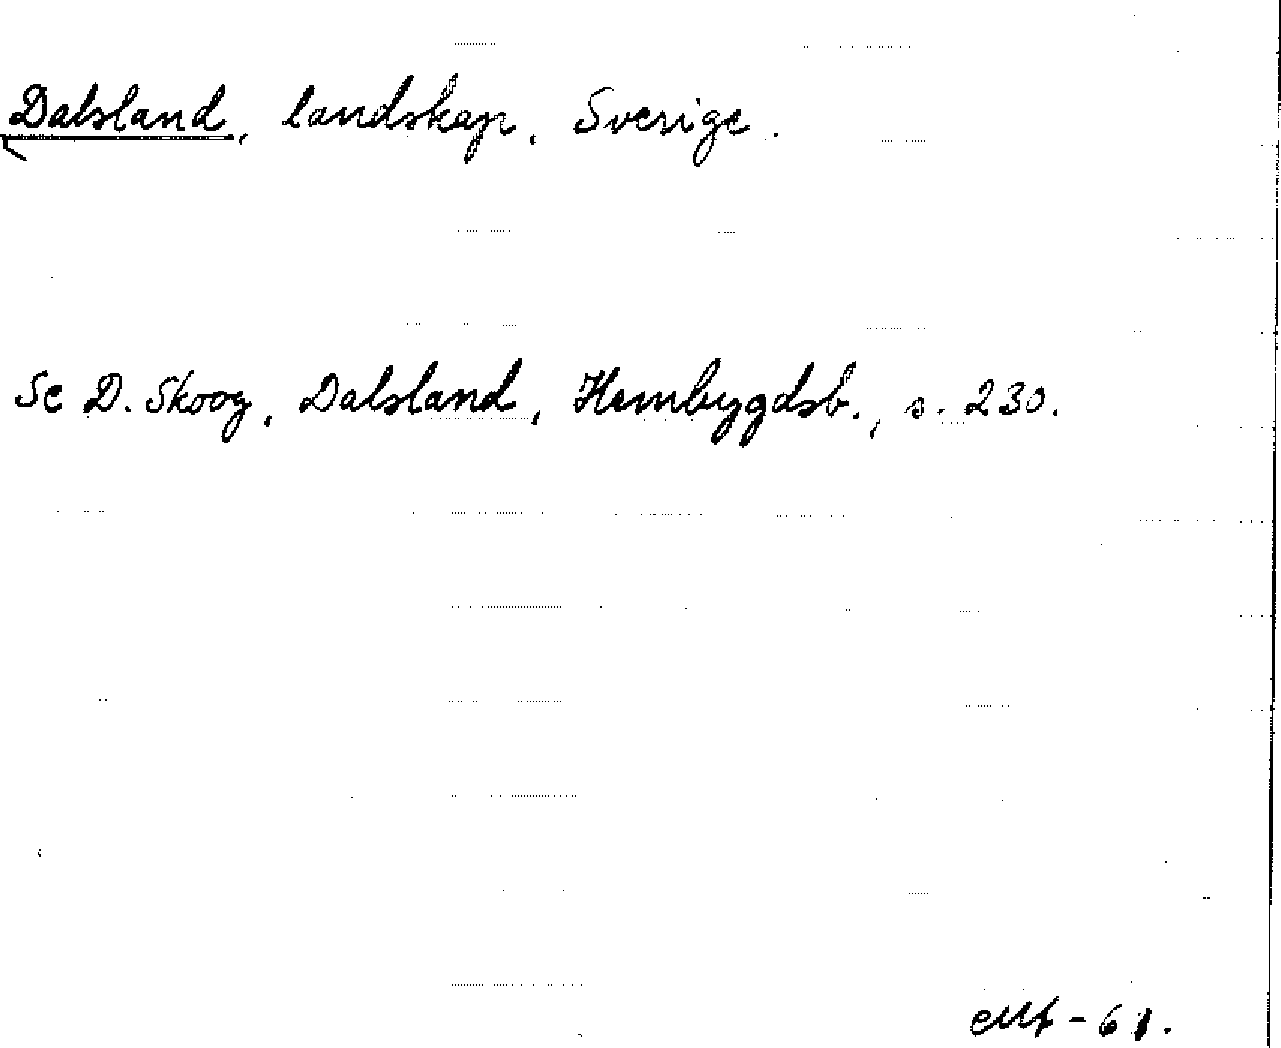 Dalsland, landskap, Sverige.
Se D. Skoog, Dalsland, Hembygdsb., s. 230.
-61.